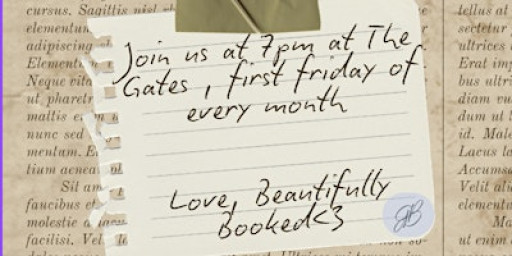 Join us at 7pm at The
Gates, first friday of
every month
Love, Beautifully
Booked<3
JB
cursus. Sagittis nisl
elementum
adipiscing
Neque vita
ut pharetr
mattis
nunc sed
mentum.
Sit am
faucibus et
molestie a
facilisi. Vel
tellus at
sectetur
ultrices
Erat imp
bus ultri
diam vu
dum ut
id. Male
Lacus la
Accumsa
Velit ali
elementu
Ma
ut enim